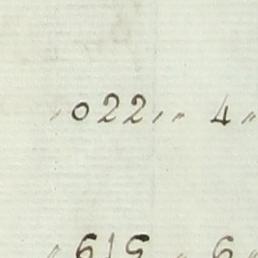 " 022 " " 4 "
" 619 " 6 "